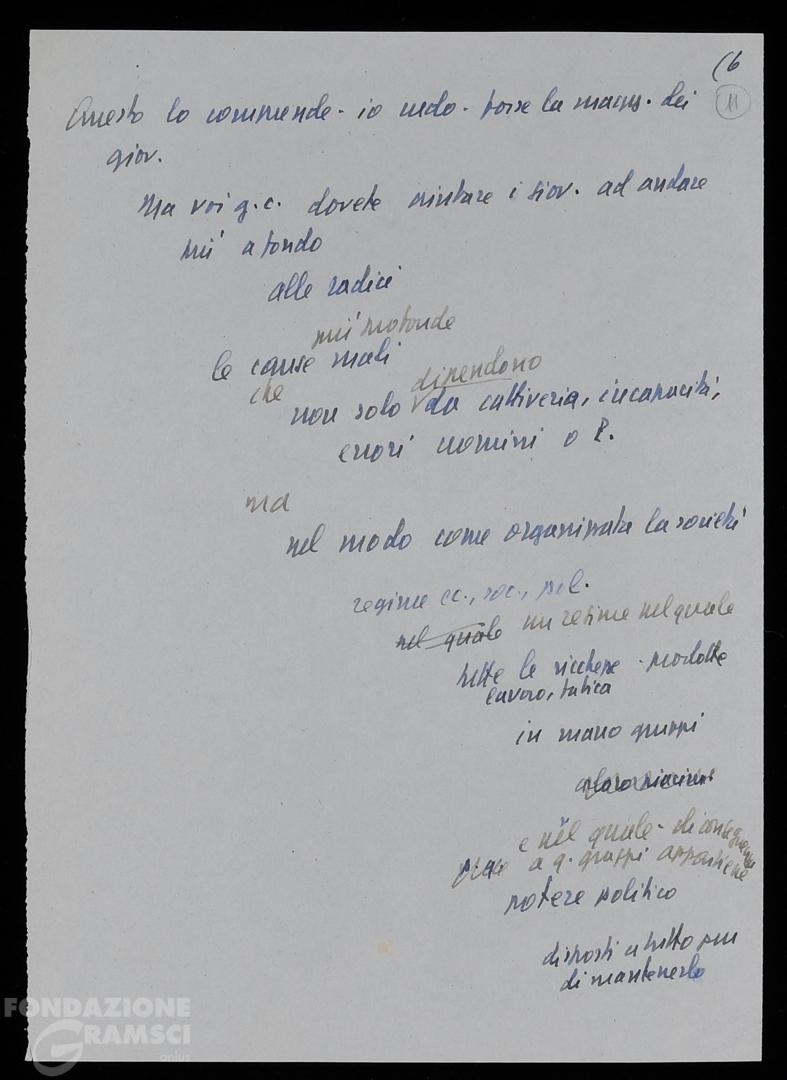 (6
11
Questo lo comprende - io credo - forse la magg. dei
giov.
Ma voi g.c. dovete aiutare i giov. ad andare
più a fondo
alle radici
più profonde
le cause mali
che
dipendono
non solo da cattiveria, incapacità,
errori uomini o P.
ma
nel modo come organizzata la società
regime ec., soc., pol.
nel quale un regime nel quale
tutte le ricchezze prodotte
lavoro, fatica
in mano gruppi
e nel quale - di conseguenza
a q. gruppi appartiene
potere politico
disposti a tutto pur
di mantenerlo
FONDAZIONE
GRAMSCI
onlus